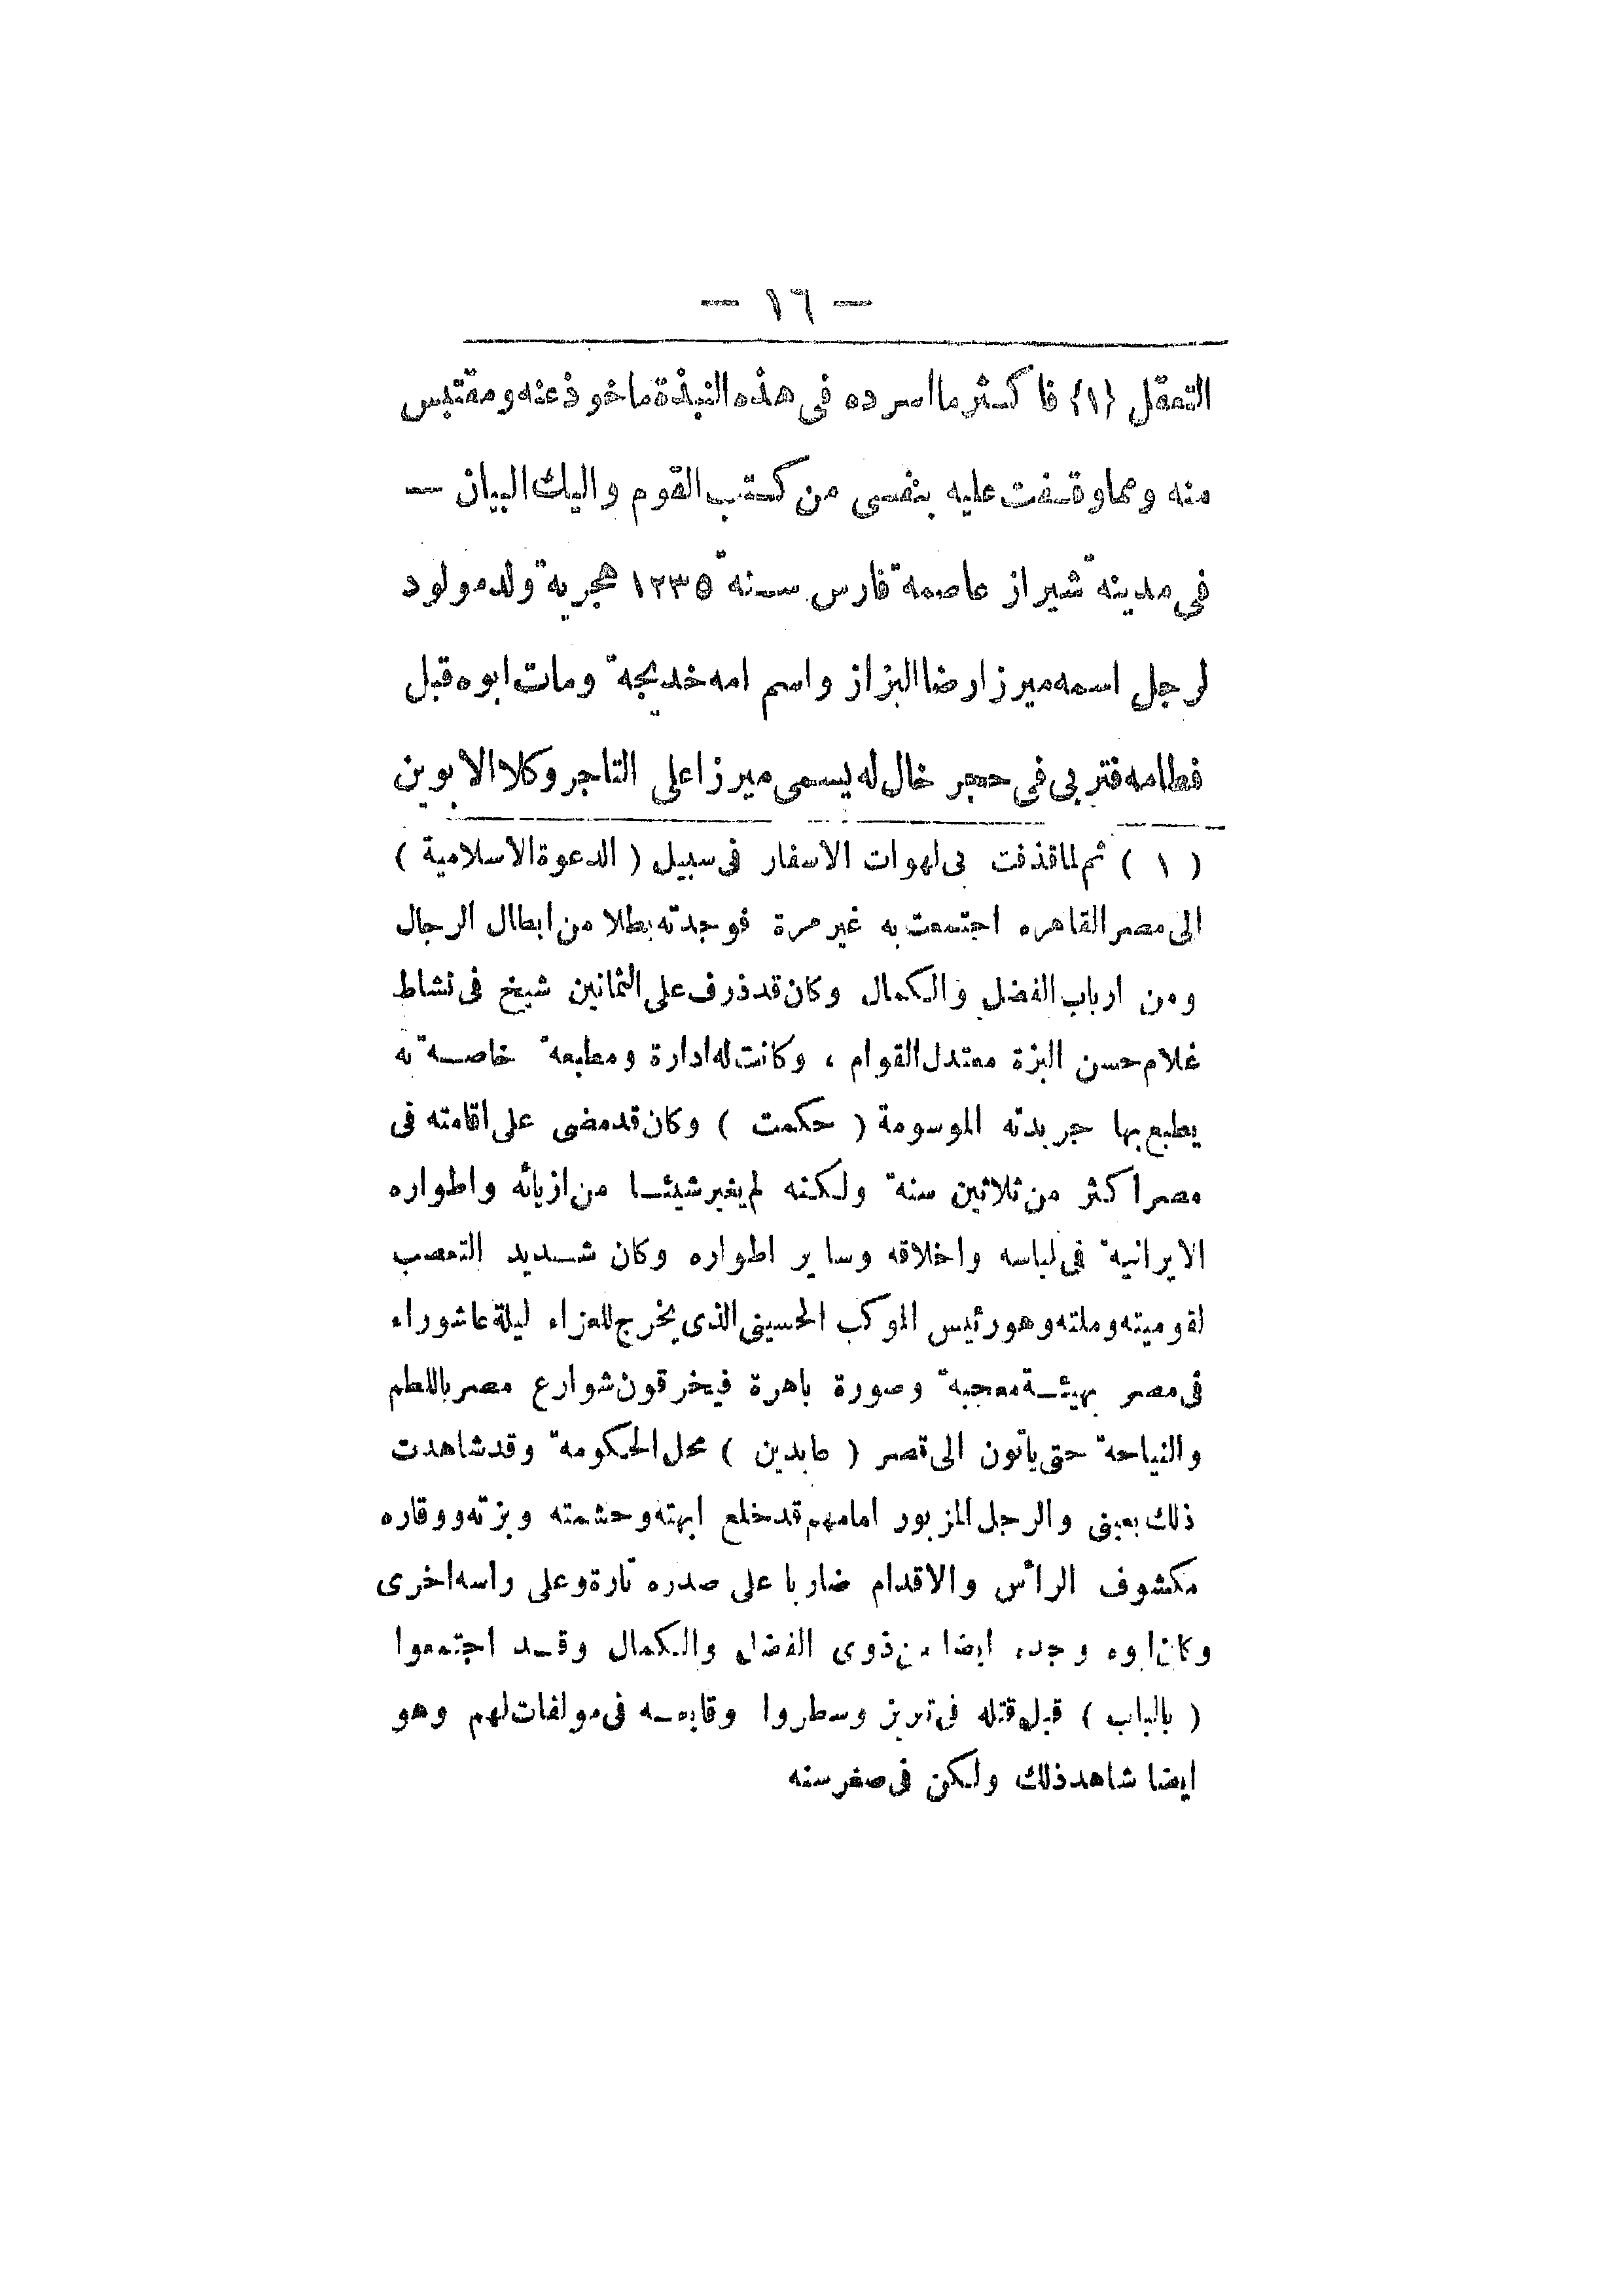 — ١٦ —
التعقل {١} فاكثر ما اسرده فى هذه النبذة ماخوذ عنه ومقتبس
منه ومما وقفت عليه بنفسى من كتب القوم واليك البيان —
فى مدينة شيراز عاصمة فارس سنة ١٢٣٥ هجرية ولد مولود
لرجل اسمه ميرزا رضا البزاز واسم امه خديجة ومات ابوه قبل
فطامه فتربى فى حجر خال له يسمى ميرزا على التاجر وكلا الابوين
( ١ ) ثم لما قذفت بى لهوات الاسفار فى سبيل ( الدعوة الاسلامية )
الى مصر القاهره اجتمعت به غير مرة فوجدته بطلا من ابطال الرجال
ومن ارباب الفضل والكمال وكان قد ذرف على الثمانين شيخ فى نشاط
غلام حسن البزة معتدل القوام ، وكانت له ادارة ومطبعة خاصة به
يطبع بها جريدته الموسومة ( حكمت ) وكان قد مضى على اقامته فى
مصر اكثر من ثلاثين سنة ولكنه لم يغير شيئا من ازيائه واطواره
الايرانية فى لباسه واخلاقه وساير اطواره وكان شديد التعصب
لقوميته وملته وهو رئيس الموكب الحسينى الذى يخرج للعزاء ليلة عاشوراء
فى مصر بهيئة معجبة وصورة باهرة فيخرقون شوارع مصر باللطم
والنياحة حتى ياتون الى قصر ( عابدين ) محل الحكومة وقد شاهدت
ذلك بعينى والرجل المزبور امامهم قد خلع ابهته وحشمته وبزته ووقاره
مكشوف الرأس والاقدام ضاربا على صدره تارة وعلى راسه اخرى
وكان ابوه وجده ايضا من ذوى الفضل والكمال وقد اجتمعوا
( بالباب ) قبل قتله فى تبريز وسطروا وقايعه فى مولفات لهم وهو
ايضا شاهد ذلك ولكن فى صغر سنه